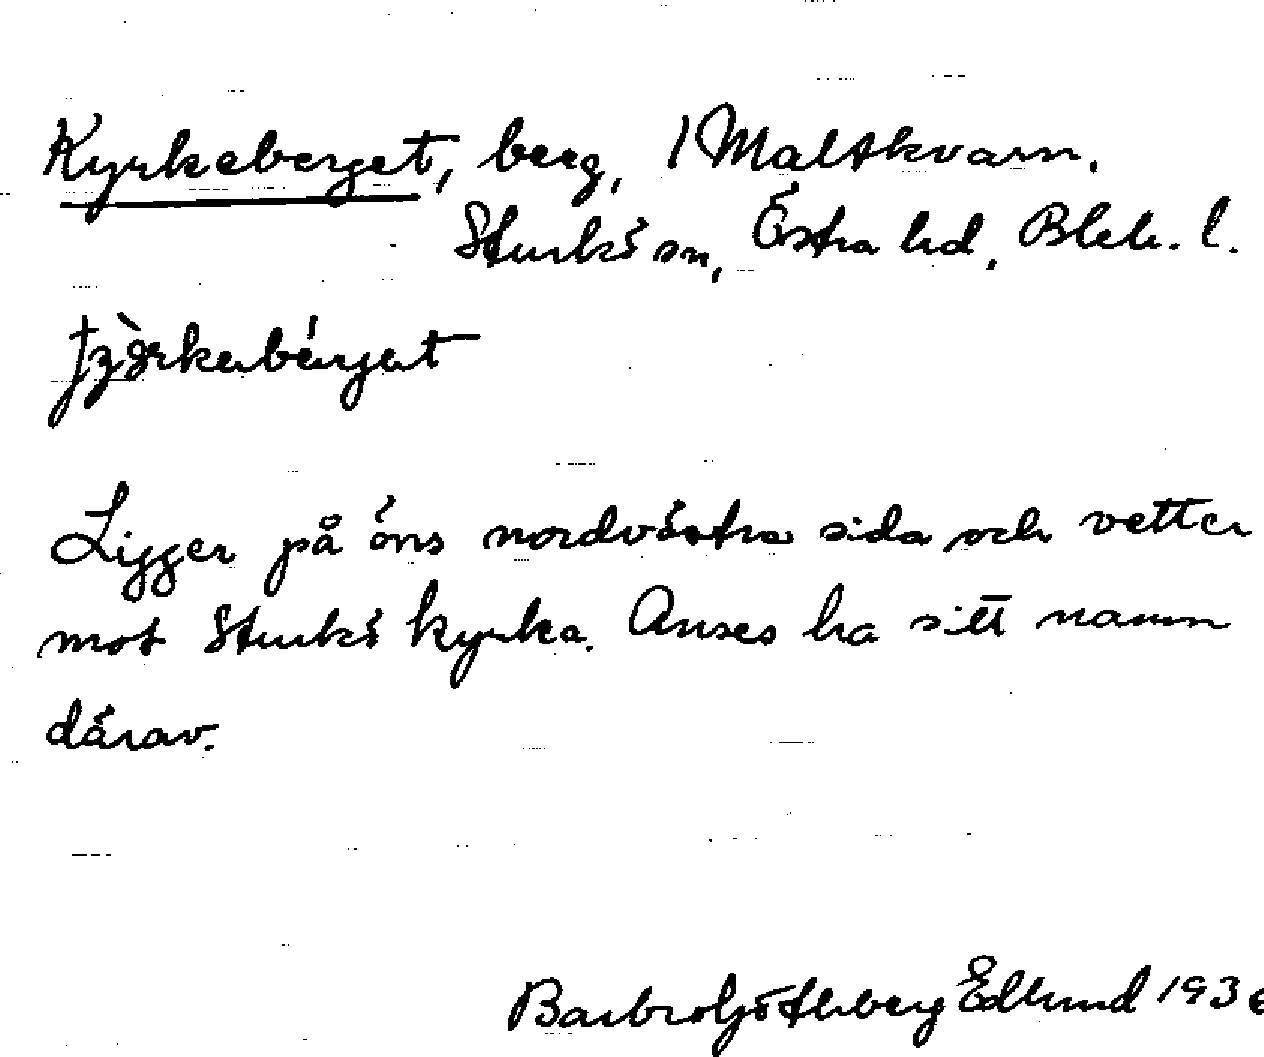 Kyrkeberget, berg, 1 Maltkvarn.
Sturkö sn, Östra hd, Blek. l.
Ligger på öns nordvästra sida och vetter
mot Sturkö kyrka. Anses ha sitt namn
därav.
Barbro Götheberg Edlund 193